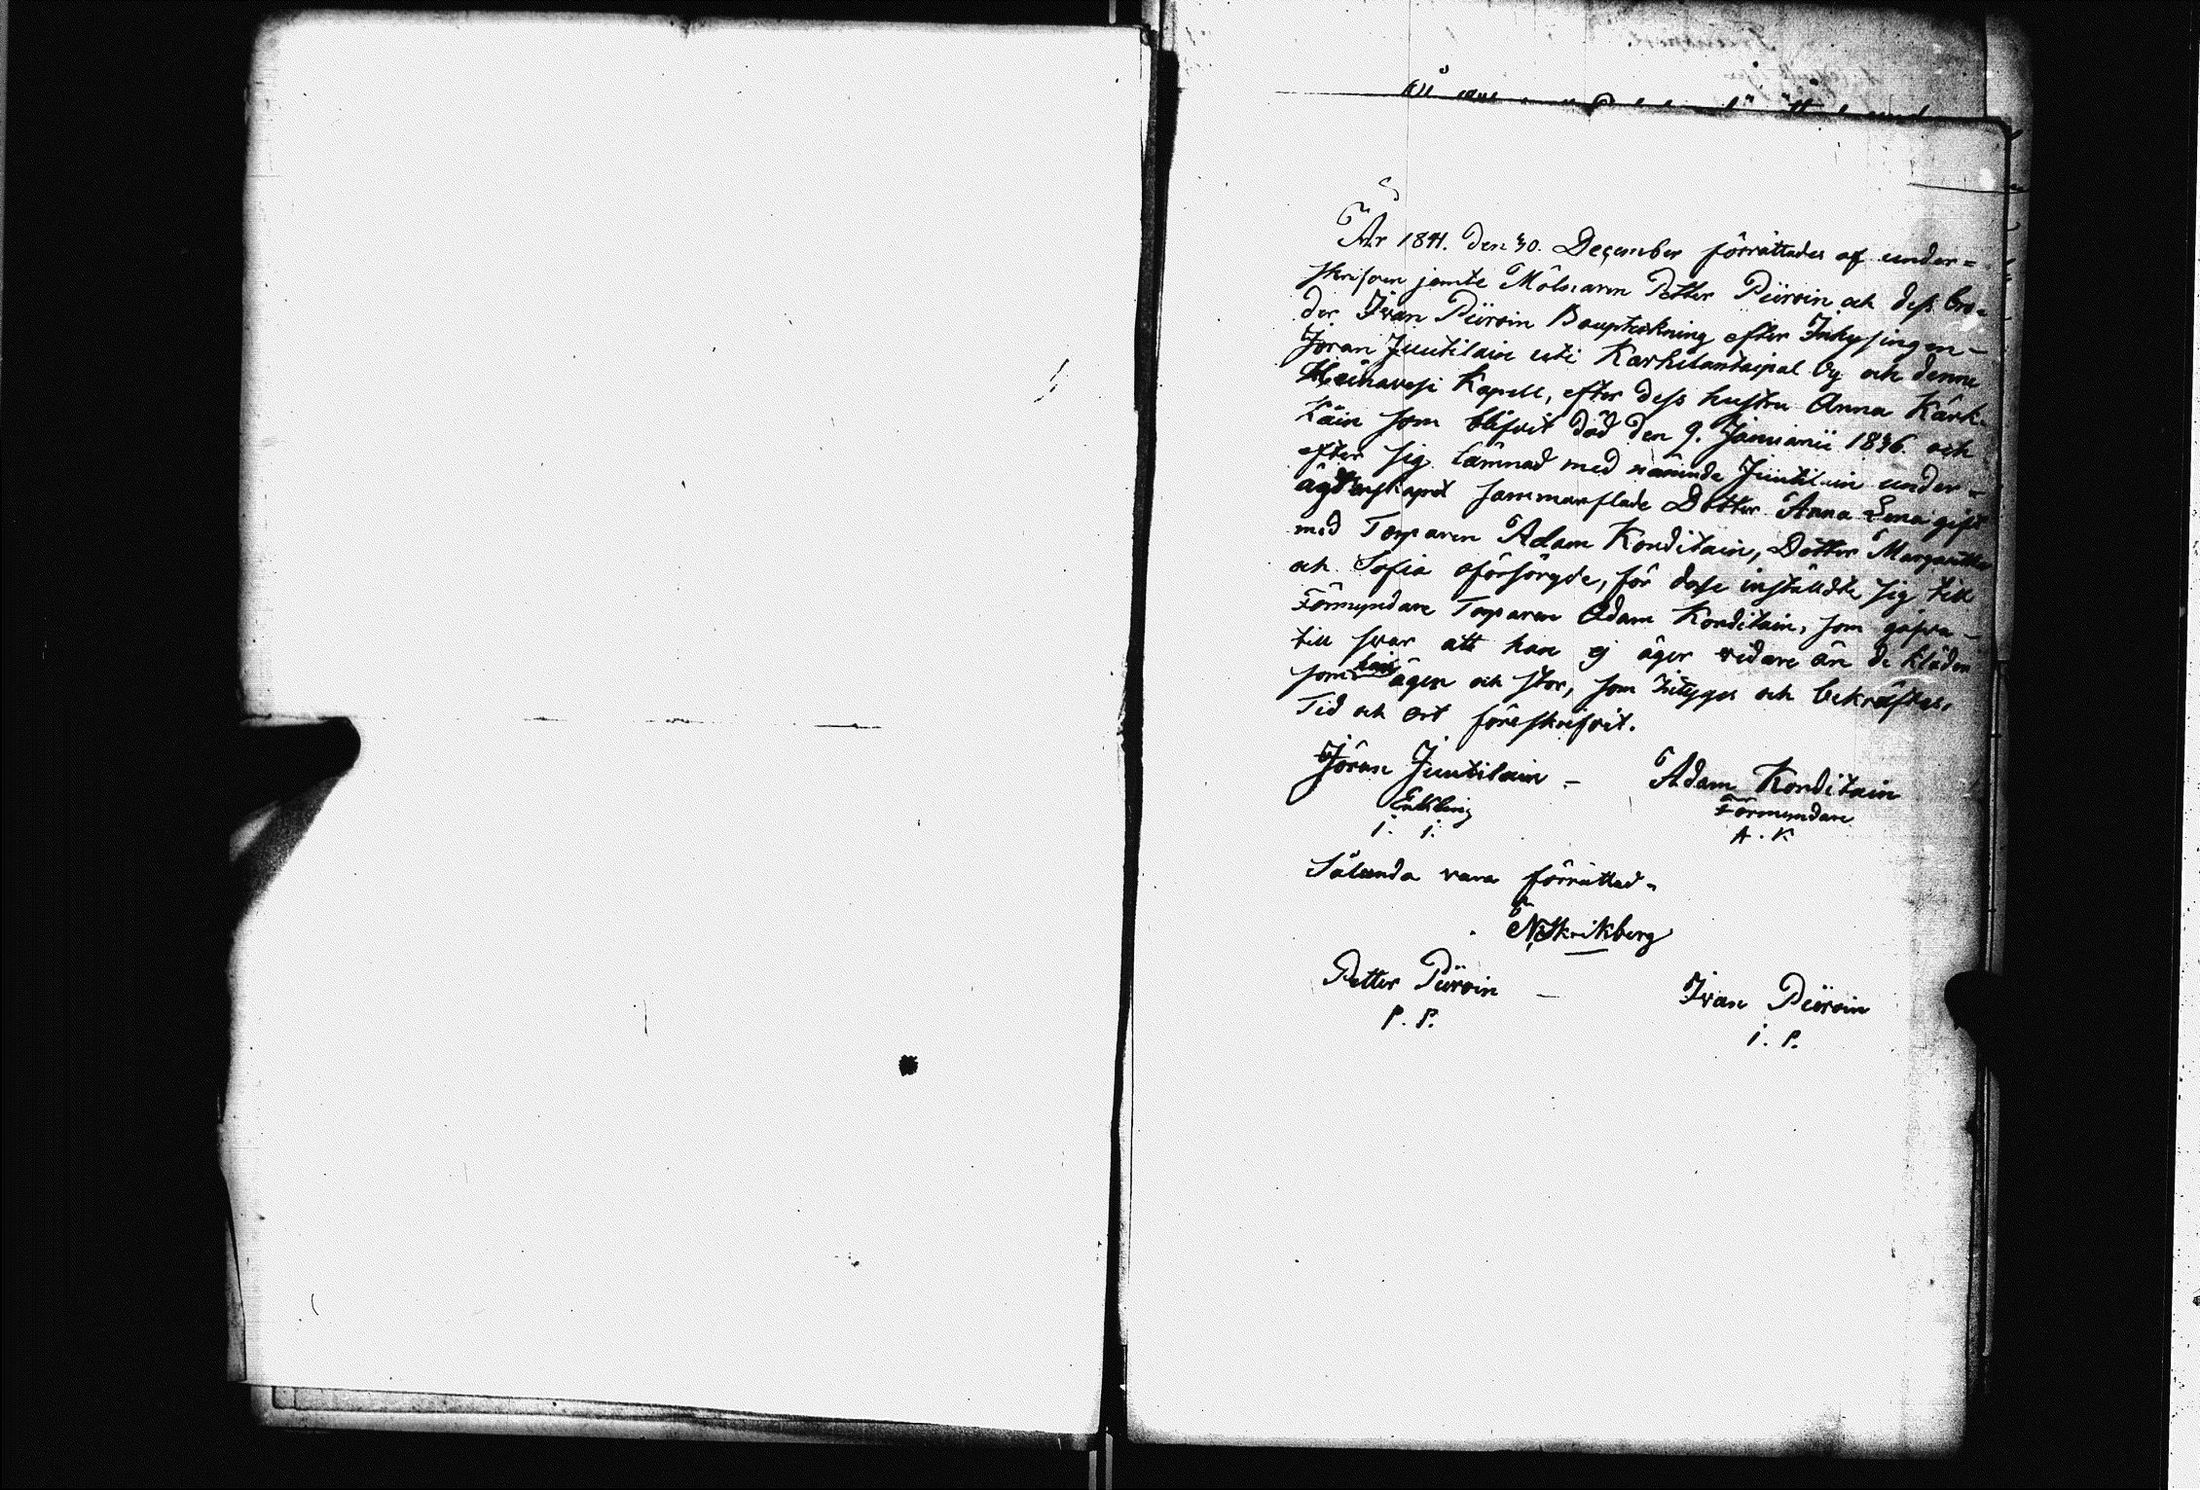 År 1841. den 30. December förrättades af under=
skrifven jemte Mölnaren Petter Piiroin och dess bro=
der Ivan Piiroin Bouptekning efter Inhysingen
Jöran Juutilain uti Karhilantaipal by och denne
Heinavesi Kapell, efter dess hustru Anna Kärk=
käin som blifvit död den 9. Januarii 1836. och
efter sig lämnad med nämde Juutilain under=
ägtenskapet sammanaflade Dotter Anna Lena gift
med Torparen Adam Konditain, Dotter Margaretha
och Sofia oförsörgde, för dessa inställdte sig till
Förmyndare Torparen Adam Konditain, som gafva
till svar att han ej äger vidare än de kläder
som han ägen och stor, som intygges och bekräftas.
Tid och ort föreskrifvit.
Jöran Juutilain – Adam Konditain
Enkling Förmyndare
i. i. A. K
Sålunda vara förrättad.
Petter Piiroin – Ivan Piiroin
P. P. i. P.